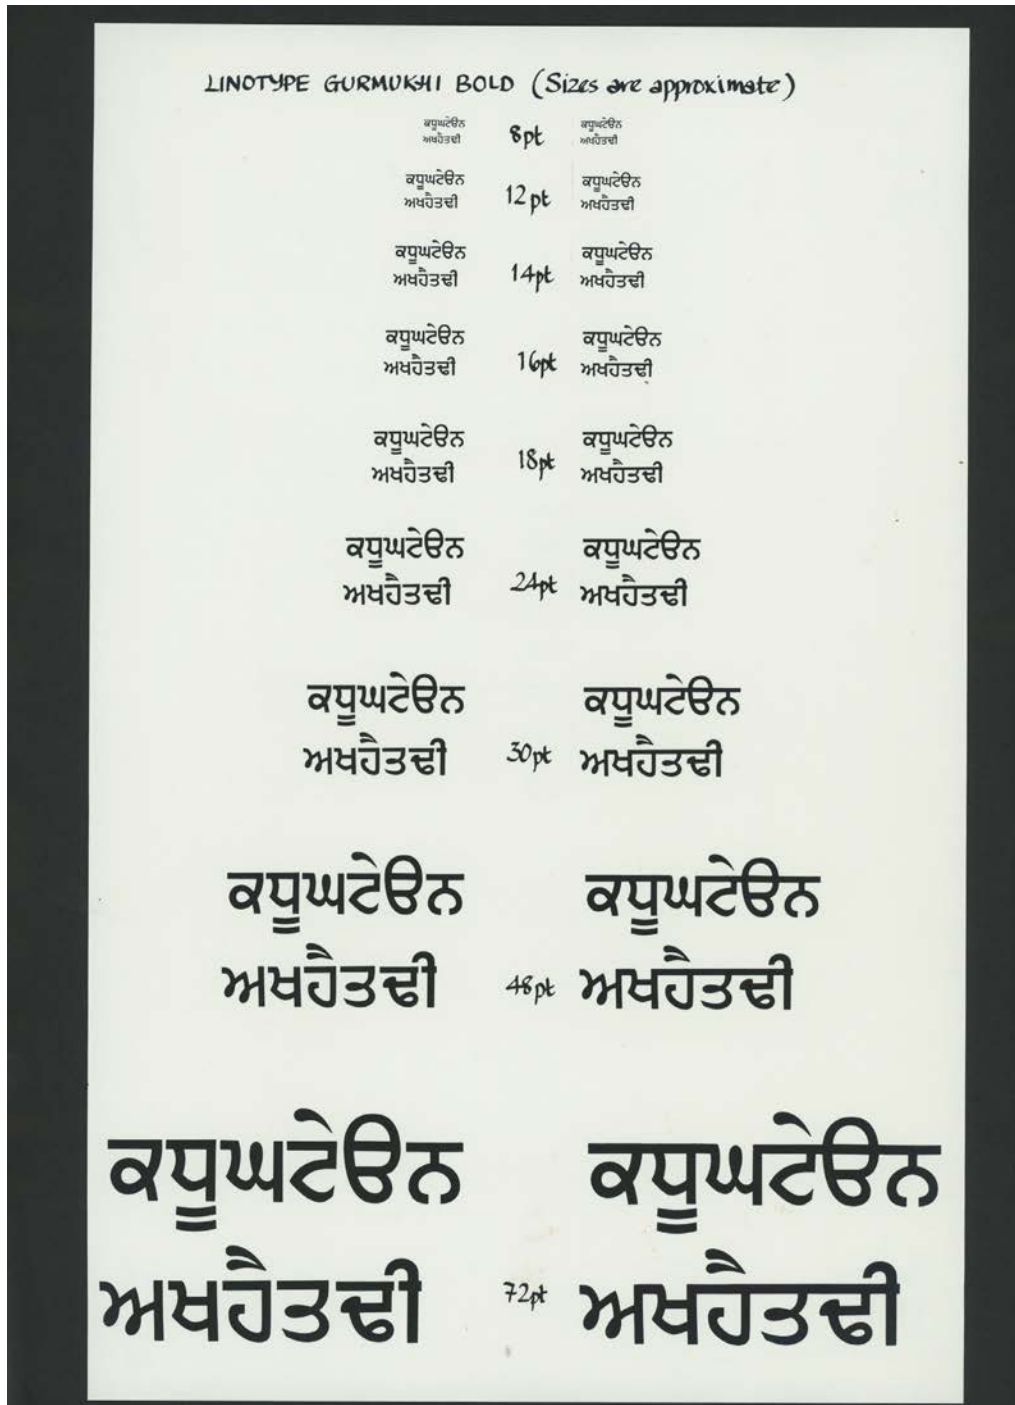 LINOTYPE GURMUKHI BOLD (Sizes are approximate)
ਕਧੂਘਟੇੳਨ
ਅਖਹੈਤਢੀ
8pt
ਕਧੂਘਟੇੳਨ
ਅਖਹੈਤਢੀ
ਕਧੂਘਟੇੳਨ
ਅਖਹੈਤਢੀ
12pt
ਕਧੂਘਟੇੳਨ
ਅਖਹੈਤਢੀ
ਕਧੂਘਟੇੳਨ
ਅਖਹੈਤਢੀ
14pt
ਕਧੂਘਟੇੳਨ
ਅਖਹੈਤਢੀ
ਕਧੂਘਟੇੳਨ
ਅਖਹੈਤਢੀ
16pt
ਕਧੂਘਟੇੳਨ
ਅਖਹੈਤਢੀ
ਕਧੂਘਟੇੳਨ
ਅਖਹੈਤਢੀ
18pt
ਕਧੂਘਟੇੳਨ
ਅਖਹੈਤਢੀ
ਕਧੂਘਟੇੳਨ
ਅਖਹੈਤਢੀ
24pt
ਕਧੂਘਟੇੳਨ
ਅਖਹੈਤਢੀ
ਕਧੂਘਟੇੳਨ
ਅਖਹੈਤਢੀ
30pt
ਕਧੂਘਟੇੳਨ
ਅਖਹੈਤਢੀ
ਕਧੂਘਟੇੳਨ
ਅਖਹੈਤਢੀ
48pt
ਕਧੂਘਟੇੳਨ
ਅਖਹੈਤਢੀ
ਕਧੂਘਟੇੳਨ
ਅਖਹੈਤਢੀ
72pt
ਕਧੂਘਟੇੳਨ
ਅਖਹੈਤਢੀ